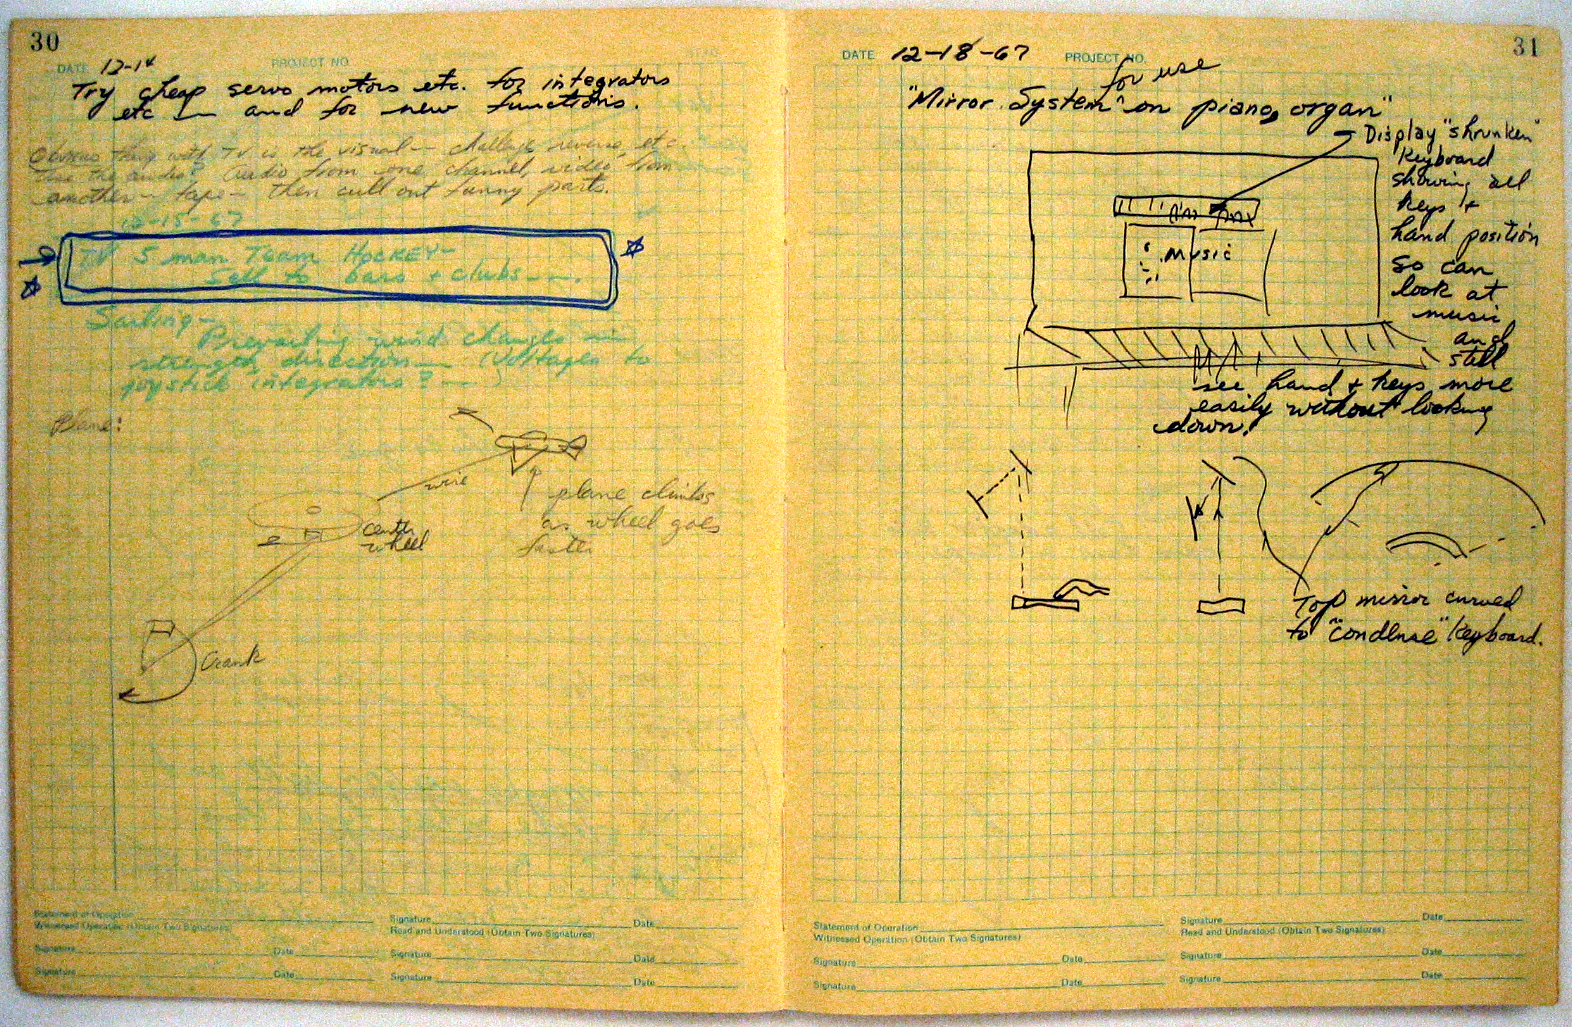 30
DATE 12-14 PROJECT NO.
Try cheap servo motors etc. for integrators
etc — and for new functions.
Obvious thing with TV is the visual — challenge reverse, etc.
the audio? Audio from one channel, video from
another — tape — then cull out funny parts.
12-15-67
TV 5 man Team HOCKEY—
Sell to bars + clubs —.
Sailing —
Prevailing wind changes —
strength direction — (Voltages to
joystick integrators? — )
Plane:
wire
plane climbs
as wheel goes
faster
center
wheel
Crank
Statement of Operation
Witnessed Operation (Obtain Two Signatures)
Signature Date
Signature Date
Signature Date
Read and Understood (Obtain Two Signatures)
Signature Date
Signature Date
31
DATE 12-18-67 PROJECT NO.
for use
"Mirror System" on piano, organ"
Display "shrunken"
keyboard
showing all
keys +
hand position
so can
look at
music
and
still
see hand + keys more
easily without looking
down.
Music
Top mirror curved
to "condense" keyboard.
Statement of Operation
Witnessed Operation (Obtain Two Signatures)
Signature Date
Signature Date
Signature Date
Read and Understood (Obtain Two Signatures)
Signature Date
Signature Date